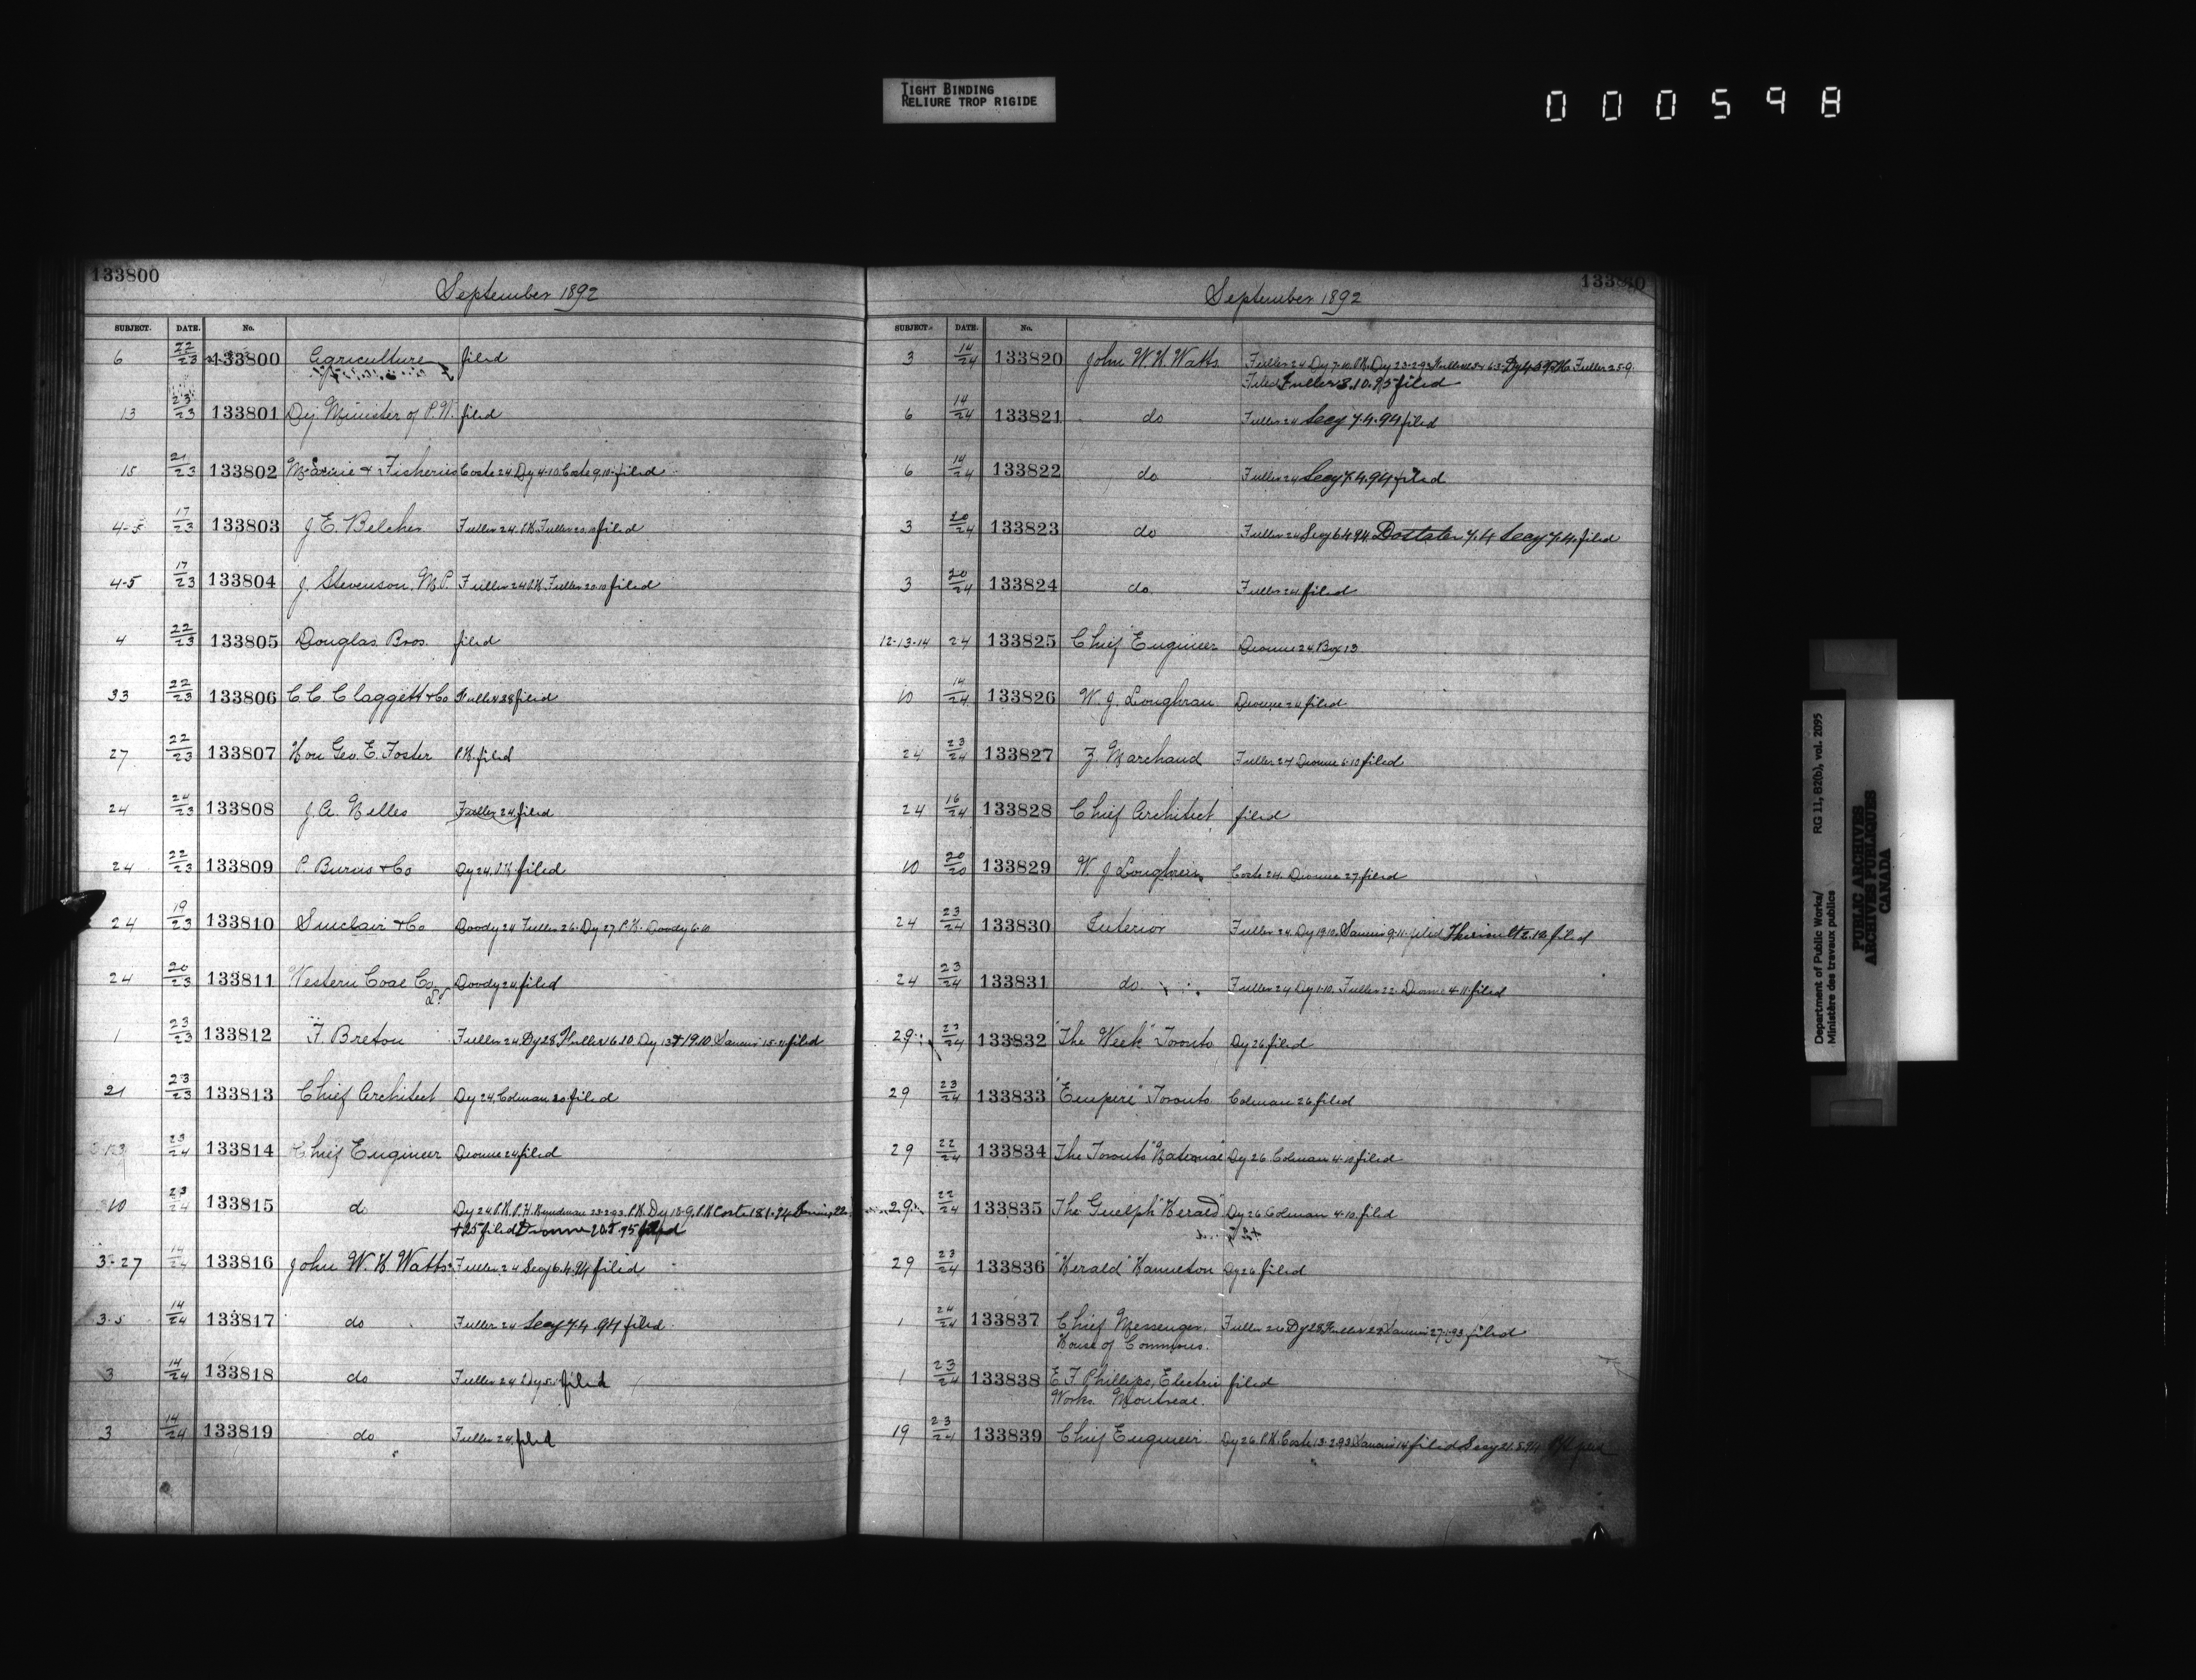 TIGHT BINDING
RELIURE TROP RIGIDE
000598
133800
September 1892
SUBJECT. DATE. No.
6 22/23 133800 Agriculture filed
13 23/23 133801 Dy Minister of P.W. filed
15 21/23 133802 Marine & Fisheries Coste 24 Dy 4-10 Coste 9.10 filed
4-5 17/23 133803 J. E. Belcher Fuller 24 P.K. Fuller 20.10 filed
4-5 17/23 133804 J. Stevenson. M.P. Fuller 24 P.K. Fuller 20.10 filed
4 22/23 133805 Douglas Bros. filed
33 22/23 133806 C. C. Claggett & Co Fuller 28 filed
27 22/23 133807 Hon Geo. E. Foster P.K. filed
24 24/23 133808 J. A. Nelles Fuller 24 filed
24 22/23 133809 P. Burns & Co Dy 24. P.K. filed
24 19/23 133810 Sinclair & Co Doody 24 Fuller 26. Dy 27 P.K. Doody 6.10
24 20/23 133811 Western Coal Co Doody 24 filed
Ld
1 23/23 133812 F. Breton Fuller 24 Dy 28 Fuller 16.10. Dy 13 & 19.10 filed
21 23/23 133813 Chief Architect Dy 24, Colman 30 filed
23/24 133814 Chief Engineer Dionne 24 filed
10 23/24 133815 do Dy 24 P.K. P.K. 23.2.93. P.K. Dy 18-9. P.K. Coste 18.1.94
& 25 filed Dionne 20.5.95 filed
3-27 14/24 133816 John W. H. Watts Fuller 24 Secy 6.4.94 filed
3-5 14/24 133817 do Fuller 24 Secy 7.4.94 filed
3 14/24 133818 do Fuller 24 filed
3 14/24 133819 do Fuller 24 filed
September 1892
SUBJECT. DATE. No.
3 14/24 133820 John W. H. Watts Fuller 24 Dy 7.10. P.K. Dy 23-2-93 Fuller 25-9.
Filed Fuller 8.10.95 filed
6 14/24 133821 do Fuller 24 Secy 7.4.94 filed
6 14/24 133822 do Fuller 24 Secy 7.4.94 filed
3 20/24 133823 do Fuller 24 Secy 6.4.94. 7.4 Secy 7.4. filed
3 20/24 133824 do Fuller 24 filed
12-13-14 24 133825 Chief Engineer Dionne 24 Box 13
10 14/24 133826 W. J. Loughran Dionne 24 filed
24 23/24 133827 F. Marchand Fuller 24 Dionne 6.10 filed
24 16/24 133828 Chief Architect filed
10 20/20 133829 W. J. Loughran Coste 24. Dionne 27 filed
24 23/24 133830 Interior Fuller 24 Dy 19.10. 9.11. filed filed
24 23/24 133831 do Fuller 24 Dy 1.10. Fuller 22. Dionne 4.11. filed
29 23/24 133832 "The Week" Toronto Dy 26 filed
29 23/24 133833 "Empire" Toronto Colman 26 filed
29 22/24 133834 The Toronto "National" Dy 26 Colman 4.10 filed
29 22/24 133835 The Guelph "Herald" Dy 26 Colman 4.10. filed
29 23/24 133836 "Herald" Hamilton Dy 26 filed
1 24/24 133837 Chief Messenger, Fuller 26 Dy 28 Fuller 29 27.1.93 filed
House of Commons.
1 23/24 133838 E F Phillips, Electric filed
Works. Montreal.
19 23/24 133839 Chief Engineer Dy 26 P.K. Coste 13.2.93 14 filed Secy 21.5.94
Department of Public Works/ RG 11, B2(b), vol. 2095
Ministère des travaux publics
PUBLIC ARCHIVES
ARCHIVES PUBLIQUES
CANADA